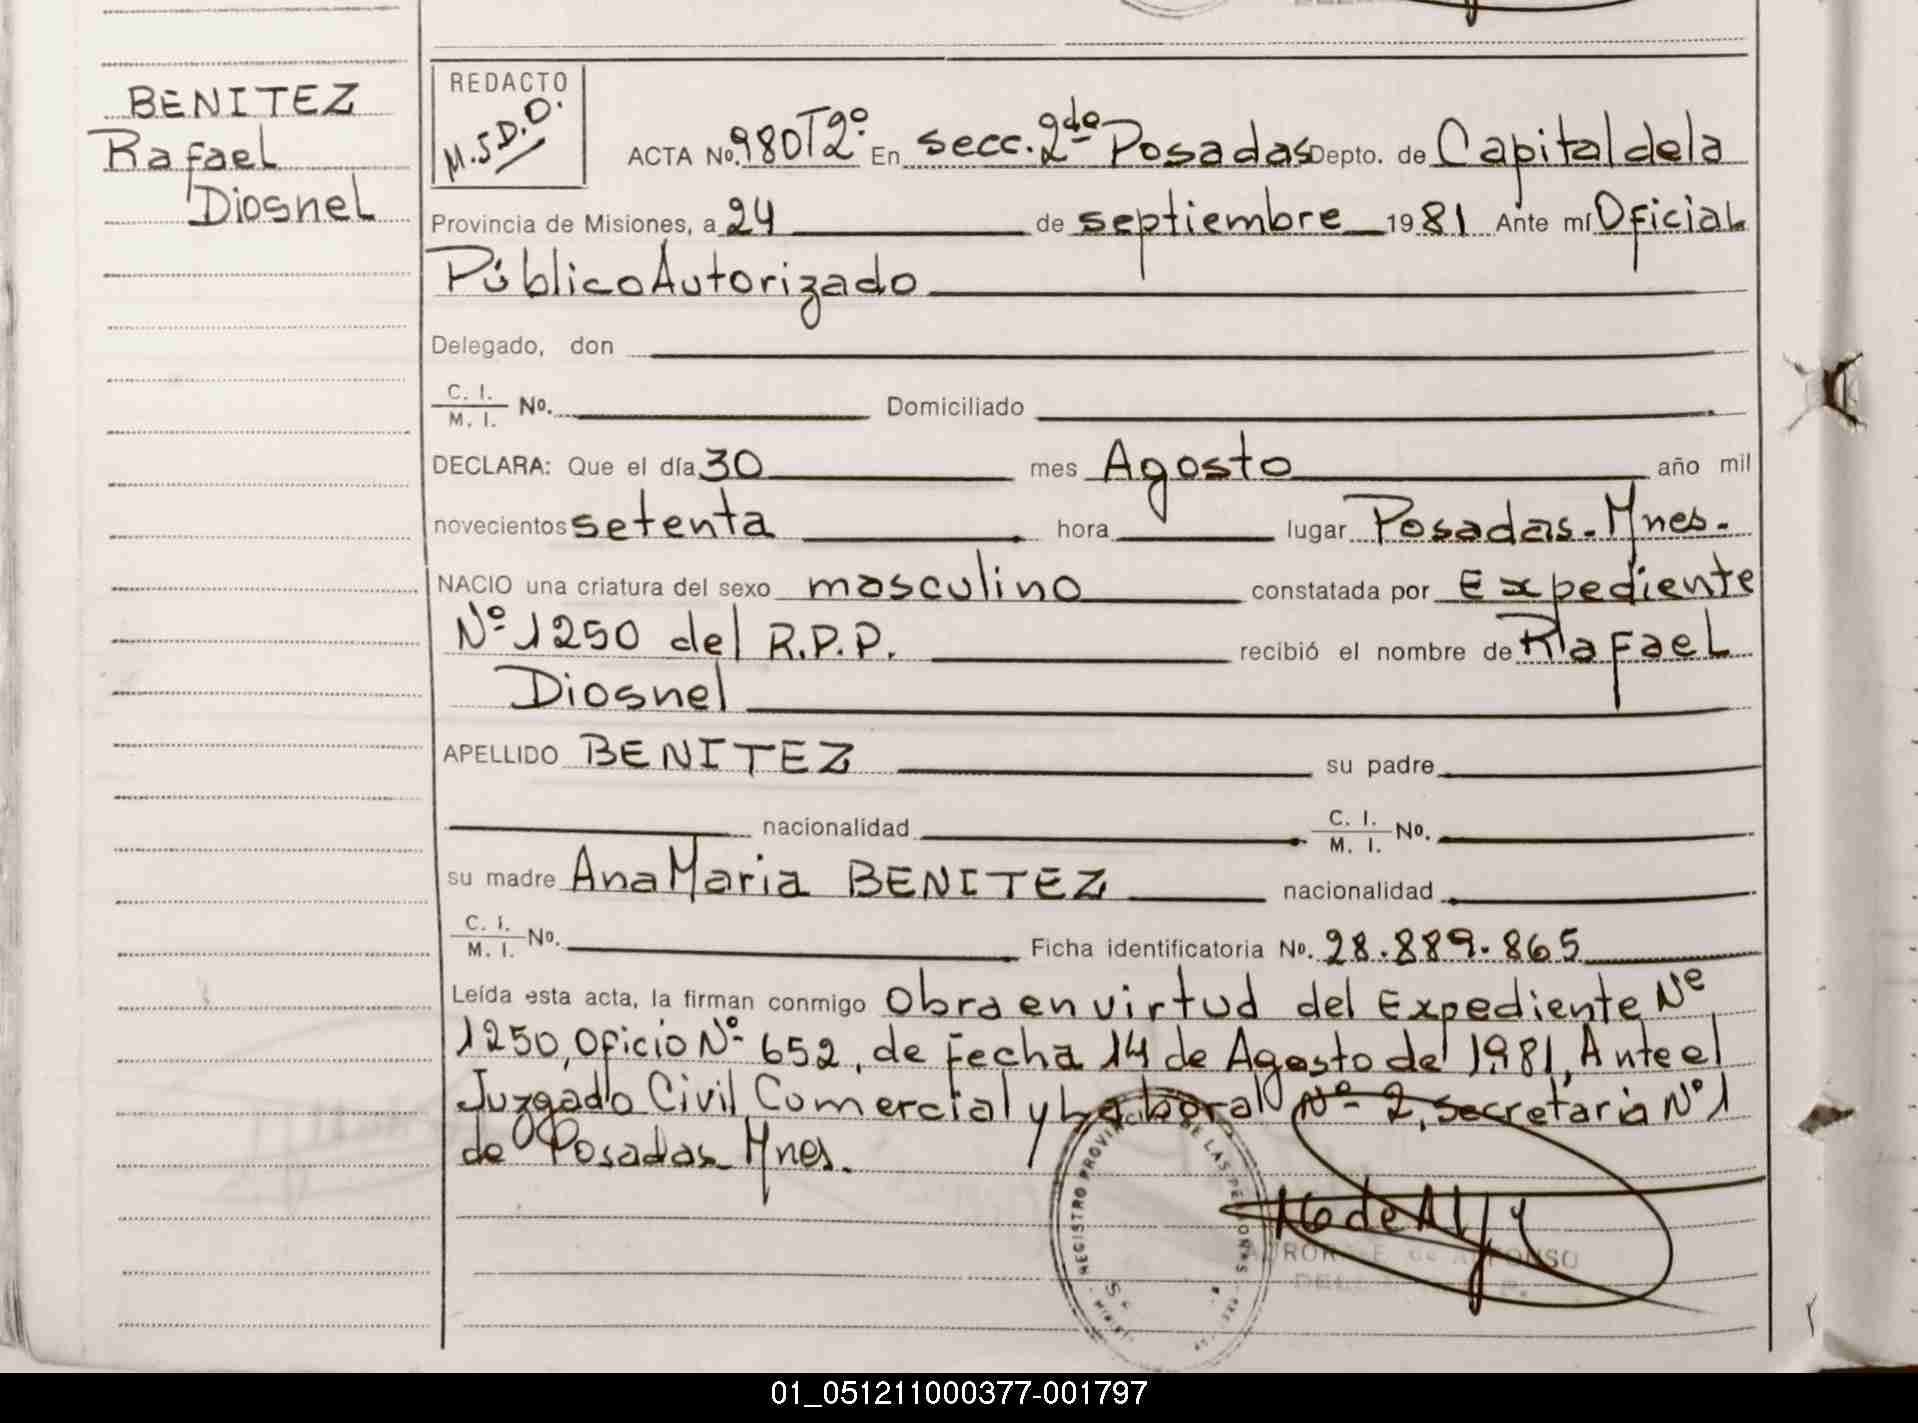 BENITEZ
Rafael
Diosnel
REDACTO
M.S.D.O.
ACTA No. 980 T2º En secc. 2da Posadas Depto. de Capital de la
Provincia de Misiones, a 24 de septiembre 1981 Ante mí Oficial
Público Autorizado
Delegado, don
C. I.
M. I. No. Domiciliado
DECLARA: Que el día 30 mes Agosto año mil
novecientos setenta hora lugar Posadas - Mnes.
NACIO una criatura del sexo masculino constatada por Expediente
Nº 1250 del R.P.P. recibió el nombre de Rafael
Diosnel
APELLIDO BENITEZ su padre
nacionalidad C. I.
M. I. No.
su madre Ana Maria BENITEZ nacionalidad
C. I.
M. I. No. Ficha identificatoria No. 28.889.865
Leída esta acta, la firman conmigo Obra en virtud del Expediente Nº
1250, Oficio Nº 652, de fecha 14 de Agosto de 1981, Ante el
Juzgado Civil, Comercial y Laboral Nº 2, secretaria Nº 1
de Posadas - Mnes.
REGISTRO DE LAS PERSONAS
de ALFONSO
01_051211000377-001797